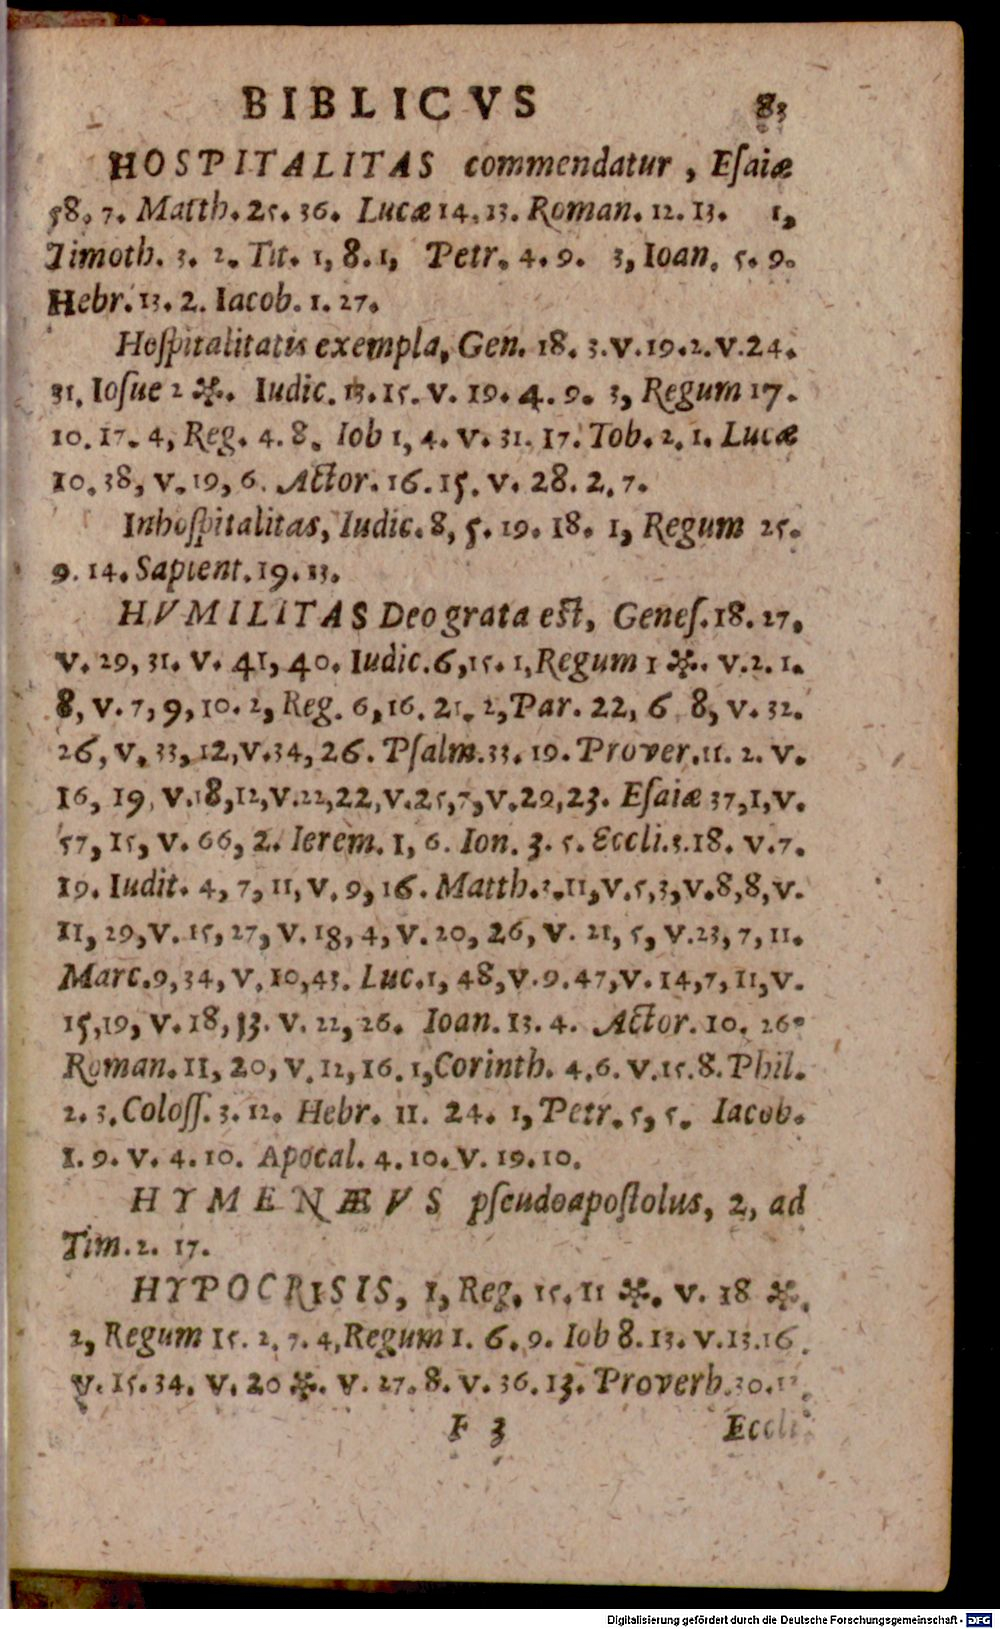 BIBLICVS 83
HOSPITALITAS commendatur, Eſaiæ
58. 7. Matth. 25. 36. Lucæ 14. 13. Roman. 12. 13. 1,
Timoth. 3. 2. Tit. 1, 8. 1, Petr. 4. 9. 3, Ioan. 5. 9.
Hebr. 13. 2. Iacob. 1. 27.
Hoſpitalitatis exempla, Gen. 18. 3. v. 19. 2. v. 24.
31. Ioſue 2 *. Iudic. 13. 15. v. 19. 4. 9. 3, Regum 17.
10. 17. 4, Reg. 4. 8. Iob 1, 4. v. 31. 17. Tob. 2. 1. Lucæ
10. 38, v. 19, 6. Actor. 16. 15. v. 28. 2. 7.
Inhoſpitalitas, Iudic. 8, 5. 19. 18. 1, Regum 25.
9. 14. Sapient. 19. 13.
HVMILITAS Deo grata eſt, Geneſ. 18. 27,
v. 29, 31. v. 41, 40. Iudic. 6, 15. 1, Regum 1 *. v. 2. 1.
8, v. 7, 9, 10. 2, Reg. 6, 16. 21. 2, Par. 22, 6 8, v. 32.
26, v. 33, 12, v. 34, 26. Pſalm. 33. 19. Prover. 11. 2. v.
16, 19, v. 18, 12, v. 22, 22, v. 25, 7, v. 29, 23. Eſaiæ 37, 1, v.
57, 15, v. 66, 2. Ierem. 1, 6. Ion. 3. 5. Eccli. 3. 18. v. 7.
19. Iudit. 4, 7, 11, v. 9, 16. Matth. 3. 11, v. 5, 3, v. 8, 8, v.
11, 29, v. 15, 27, v. 18, 4, v. 20, 26, v. 21, 5, v. 23, 7, 11.
Marc. 9, 34, v. 10, 43. Luc. 1, 48, v. 9. 47, v. 14, 7, 11, v.
15, 19, v. 18, 13. v. 22, 26. Ioan. 13. 4. Actor. 10. 26.
Roman. 11, 20, v. 12, 16. 1, Corinth. 4. 6. v. 15. 8. Phil.
2. 3. Coloſſ. 3. 12. Hebr. 11. 24. 1, Petr. 5, 5. Iacob.
1. 9. v. 4. 10. Apocal. 4. 10. v. 19. 10.
HYMENÆVS pſeudoapoſtolus, 2, ad
Tim. 2. 17.
HYPOCRISIS, 1, Reg. 15. 11 *. v. 18 *.
2, Regum 15. 2. 7. 4, Regum 1. 6. 9. Iob 8. 13. v. 13. 16.
v. 15. 34. v. 20 *. v. 27. 8. v. 36. 13. Proverb. 30.
F 3 Eccli
Digitalisierung gefördert durch die Deutsche Forschungsgemeinschaft - DFG